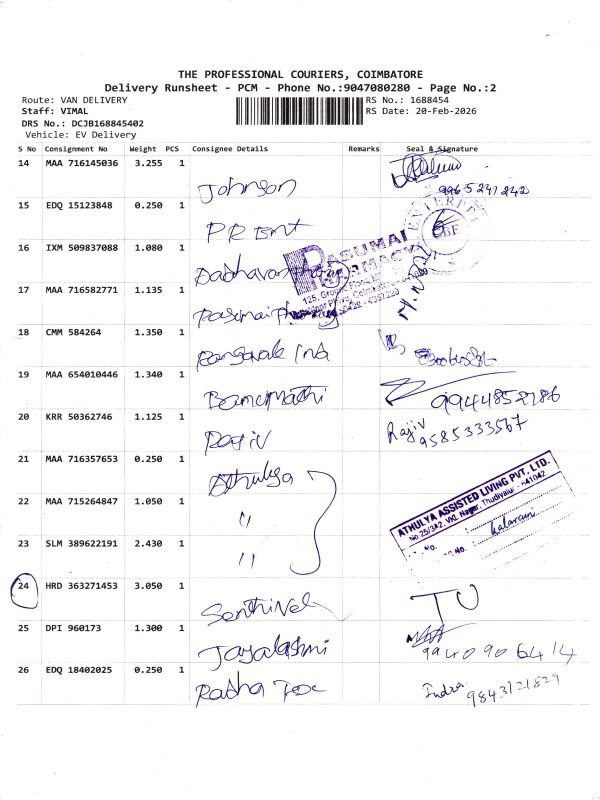 THE PROFESSIONAL COURIERS, COIMBATORE
Delivery Runsheet - PCM - Phone No.:9047080280 - Page No.:2
Route: VAN DELIVERY
RS No.: 1688454
Staff: VIMAL
RS Date: 20-Feb-2026
DRS No.: DCJB168845402
Vehicle: EV Delivery
S No Consignment No Weight PCS Consignee Details Remarks Seal & Signature
14 MAA 716145036 3.255 1
Johnson 9965241242
15 EDQ 15123848 0.250 1
16 IXM 509837088 1.080 1
PASUMAI
PHARMACY
17 MAA 716582771 1.135 1
18 CMM 584264 1.350 1
19 MAA 654010446 1.340 1
20 KRR 50362746 1.125 1
Rajiv Rajiv
9585333567
21 MAA 716357653 0.250 1
Athulya
ATHULYA ASSISTED LIVING PVT. LTD.
22 MAA 715264847 1.050 1
"
23 SLM 389622191 2.430 1
"
24 HRD 363271453 3.050 1
Senthivel
25 DPI 960173 1.300 1
Jayalakshmi 9940906414
26 EDQ 18402025 0.250 1
Radha Indra
9843121829